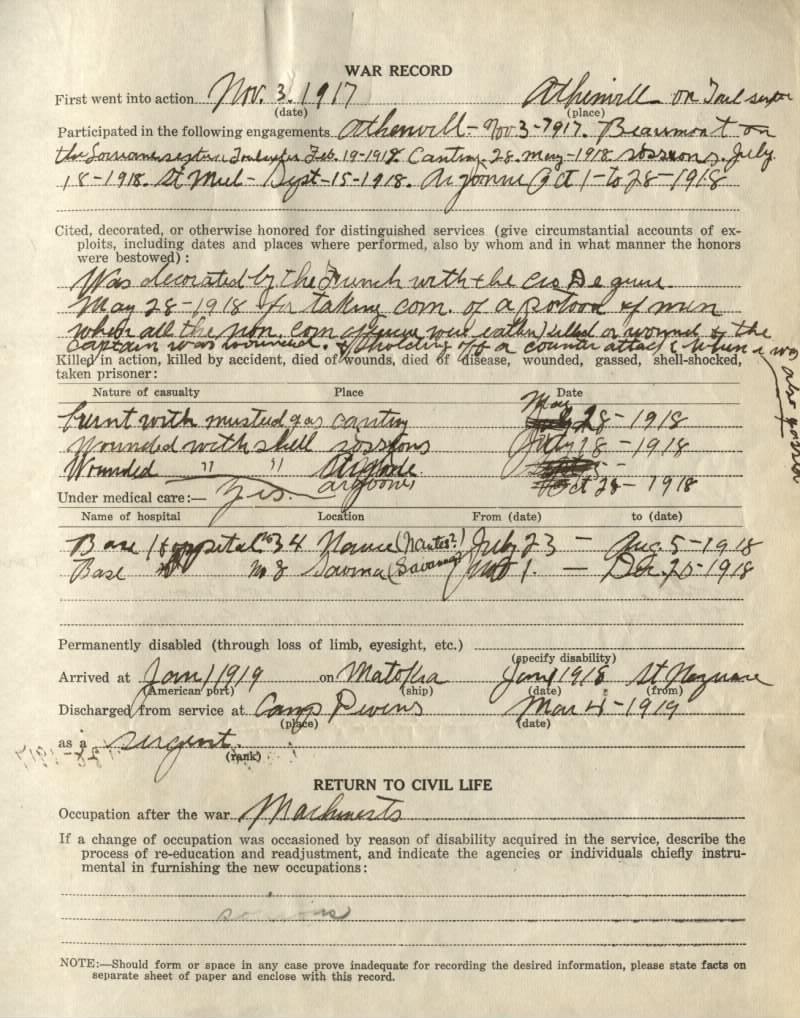 WAR RECORD
First went into action Nov. 3. 1917 Athenvill on Toul sector
(date) (place)
Participated in the following engagements Athenvill - Nov 3-7917. Beaumont on
the Feb. 19-1918. Cantiny. 28. May-1918 sossions. July
18-1918. St Miel - Sept-15-1918. Argonne Oct 1-to 28-1918
Cited, decorated, or otherwise honored for distinguished services (give circumstantial accounts of ex-
ploits, including dates and places where performed, also by whom and in what manner the honors
were bestowed):
Was decorated by the French with the
May 28-1918 for taking com. of a of men
when all the non. com were killed or wound & the
captain was wounded. & holding off a counter attack (when i was
also gassed
Killed in action, killed by accident, died of wounds, died of disease, wounded, gassed, shell-shocked,
taken prisoner:
Nature of casualty Place Date
burnt with musterd gas cantiny May 28-1918
wounded with shell sossions July 18-1918
Wounded " "
argonne Oct 28-1918
Under medical care:— Yes.
Name of hospital Location From (date) to (date)
Base Hospital No 34 (Nantes?) July 23 - Aug. 5-1918
Base 1. - Dec. 20-1918
Permanently disabled (through loss of limb, eyesight, etc.)
(specify disability)
Arrived at Jan 1 1919 on Matoika Jan 1 1918 St
(American port) (ship) (date) (from)
Discharged from service at Camp Devens Mar 4-1919
(place) (date)
as a sergent.
(rank)
RETURN TO CIVIL LIFE
Occupation after the war Machinests
If a change of occupation was occasioned by reason of disability acquired in the service, describe the
process of re-education and readjustment, and indicate the agencies or individuals chiefly instru-
mental in furnishing the new occupations:
NOTE:—Should form or space in any case prove inadequate for recording the desired information, please state facts on
separate sheet of paper and enclose with this record.